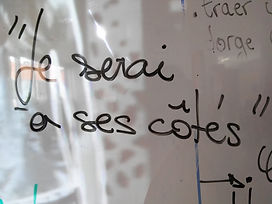 "Je serai
à ses côtés"
traer
forge